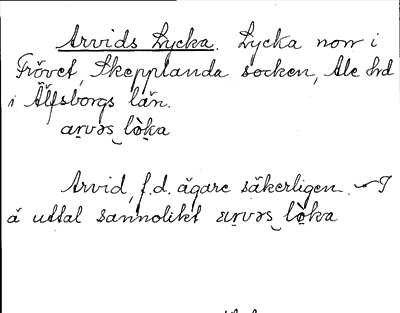 Arvids Lycka. Lycka norr i
Frövet, Skepplanda socken, Ale hd
i Älfsborgs län.
aṛvəs‿lòka
Arvid, f.d. ägare säkerligen. I
å uttal sannolikt aṛvəs‿lòka